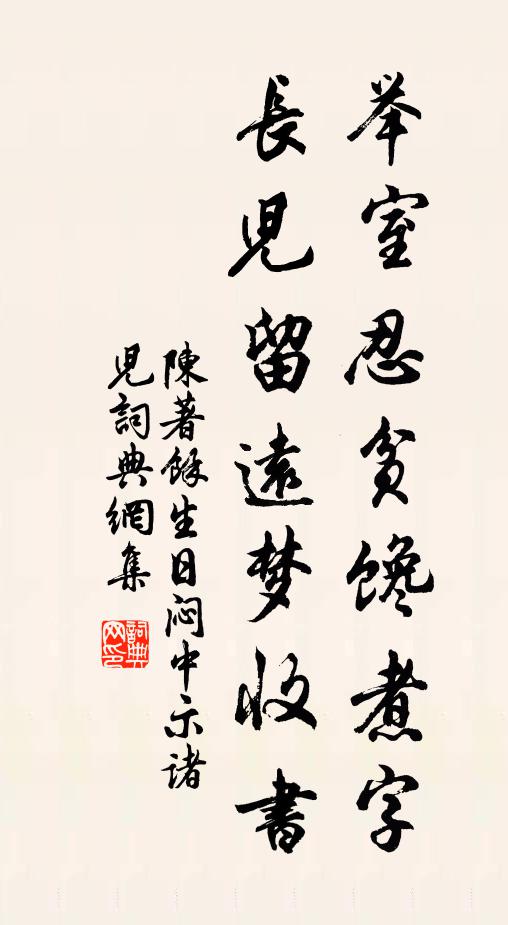 举室忍贫馋煮字
長児留遠梦收書
陳著餘生日闷中示诸
児詞典網集
詞典网印